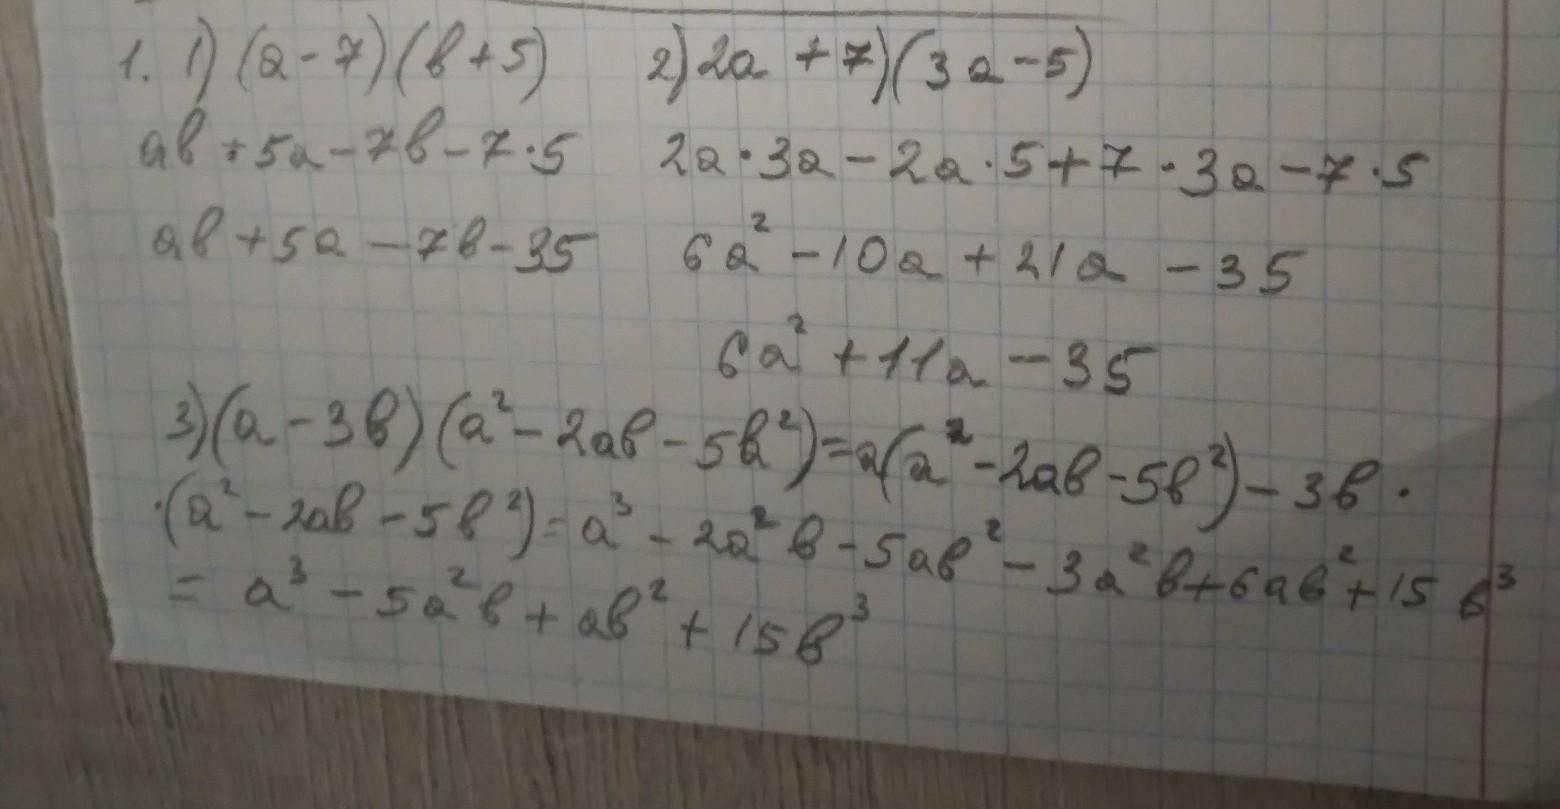 1. 1) (a-7)(b+5) 2) 2a +7)(3a-5)
ab+5a-7b-7·5 2a·3a-2a·5+7·3a-7·5
ab+5a-7b-35 6a²-10a+21a-35
6a²+11a-35
3)(a-3b)(a²-2ab-5b²)=a(a²-2ab-5b²)-3b·
·(a²-2ab-5b²)=a³-2a²b-5ab²-3a²b+6ab²+15b³
=a³-5a²b+ab²+15b³